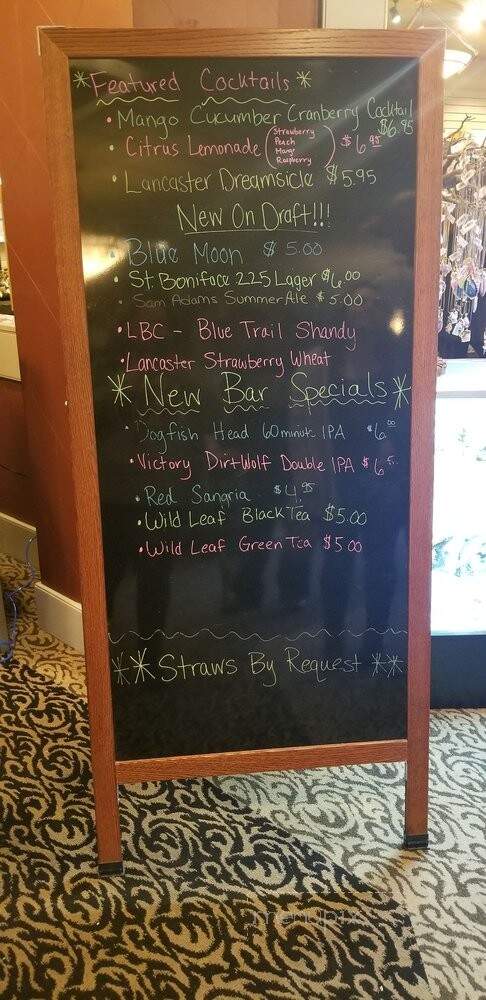 *Featured Cocktails*
• Mango Cucumber Cranberry Cocktail
$6.95
• Citrus Lemonade (Strawberry Peach Mango Raspberry) $6.95
• Lancaster Dreamsicle $5.95
New On Draft!!!
• Blue Moon $5.00
• St. Boniface 225 Lager $6.00
• Sam Adams Summer Ale $5.00
• LBC - Blue Trail Shandy
• Lancaster Strawberry Wheat
*New Bar Specials*
• Dogfish Head 60 minute IPA $6.00
• Victory DirtWolf Double IPA $6
• Red Sangria $4.95
• Wild Leaf Black Tea $5.00
• Wild Leaf Green Tea $5.00
**Straws By Request**
menupix